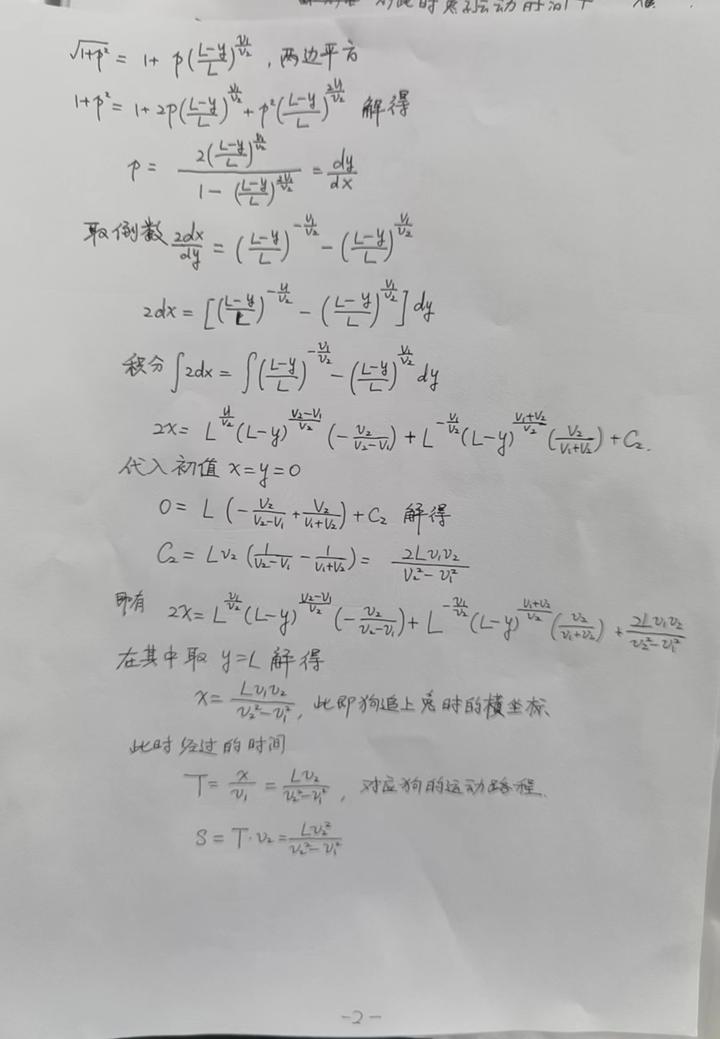 对此时兔的运动时间T
√(1+p²) = 1 + p((L-y)/L)^(v₁/v₂), 两边平方
1+p² = 1+2p((L-y)/L)^(v₁/v₂) + p²((L-y)/L)^(2v₁/v₂) 解得
p = 2((L-y)/L)^(v₁/v₂) / (1 - ((L-y)/L)^(2v₁/v₂)) = dy/dx
取倒数 2dx/dy = ((L-y)/L)^(-v₁/v₂) - ((L-y)/L)^(v₁/v₂)
2dx = [((L-y)/L)^(-v₁/v₂) - ((L-y)/L)^(v₁/v₂)] dy
积分 ∫2dx = ∫((L-y)/L)^(-v₁/v₂) - ((L-y)/L)^(v₁/v₂) dy
2x = L^(v₁/v₂) (L-y)^((v₂-v₁)/v₂) (-v₂/(v₂-v₁)) + L^(-v₁/v₂) (L-y)^((v₁+v₂)/v₂) (v₂/(v₁+v₂)) + C₂.
代入初值 x=y=0
0 = L(-v₂/(v₂-v₁) + v₂/(v₁+v₂)) + C₂ 解得
C₂ = Lv₂(1/(v₂-v₁) - 1/(v₁+v₂)) = 2Lv₁v₂/(v₂²-v₁²)
即有 2x = L^(v₁/v₂) (L-y)^((v₂-v₁)/v₂) (-v₂/(v₂-v₁)) + L^(-v₁/v₂) (L-y)^((v₁+v₂)/v₂) (v₂/(v₁+v₂)) + 2Lv₁v₂/(v₂²-v₁²)
在其中取 y=L 解得
x = Lv₁v₂/(v₂²-v₁²), 此即狗追上兔时的横坐标
此时经过的时间
T = x/v₁ = Lv₂/(v₂²-v₁²), 对应狗的运动路程
S = T·v₂ = Lv₂²/(v₂²-v₁²)
-2-